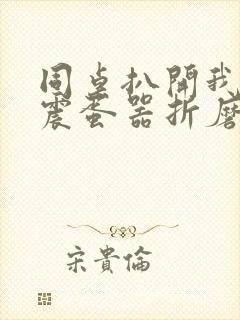 同桌扒開我
震蛋器折磨
宋貴倫